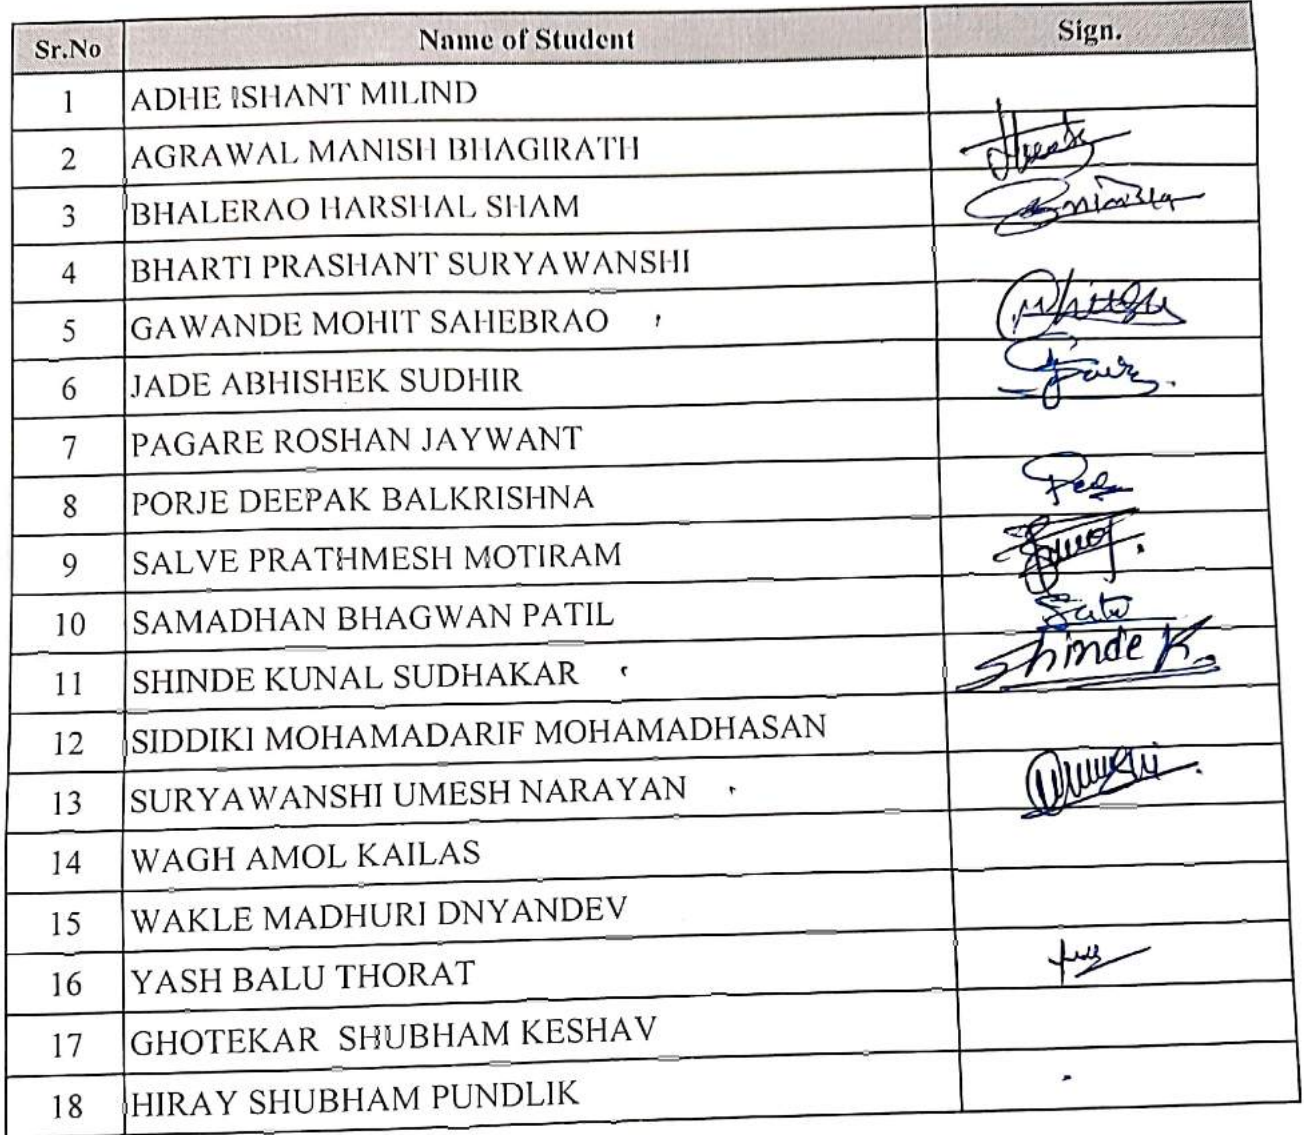 Sr.No Name of Student Sign.
1 ADHE ISHANT MILIND
2 AGRAWAL MANISH BHAGIRATH
3 BHALERAO HARSHAL SHAM
4 BHARTI PRASHANT SURYAWANSHI
5 GAWANDE MOHIT SAHEBRAO
6 JADE ABHISHEK SUDHIR
7 PAGARE ROSHAN JAYWANT
8 PORJE DEEPAK BALKRISHNA
9 SALVE PRATHMESH MOTIRAM
10 SAMADHAN BHAGWAN PATIL
11 SHINDE KUNAL SUDHAKAR Shinde K.
12 SIDDIKI MOHAMADARIF MOHAMADHASAN
13 SURYAWANSHI UMESH NARAYAN
14 WAGH AMOL KAILAS
15 WAKLE MADHURI DNYANDEV
16 YASH BALU THORAT
17 GHOTEKAR SHUBHAM KESHAV
18 HIRAY SHUBHAM PUNDLIK